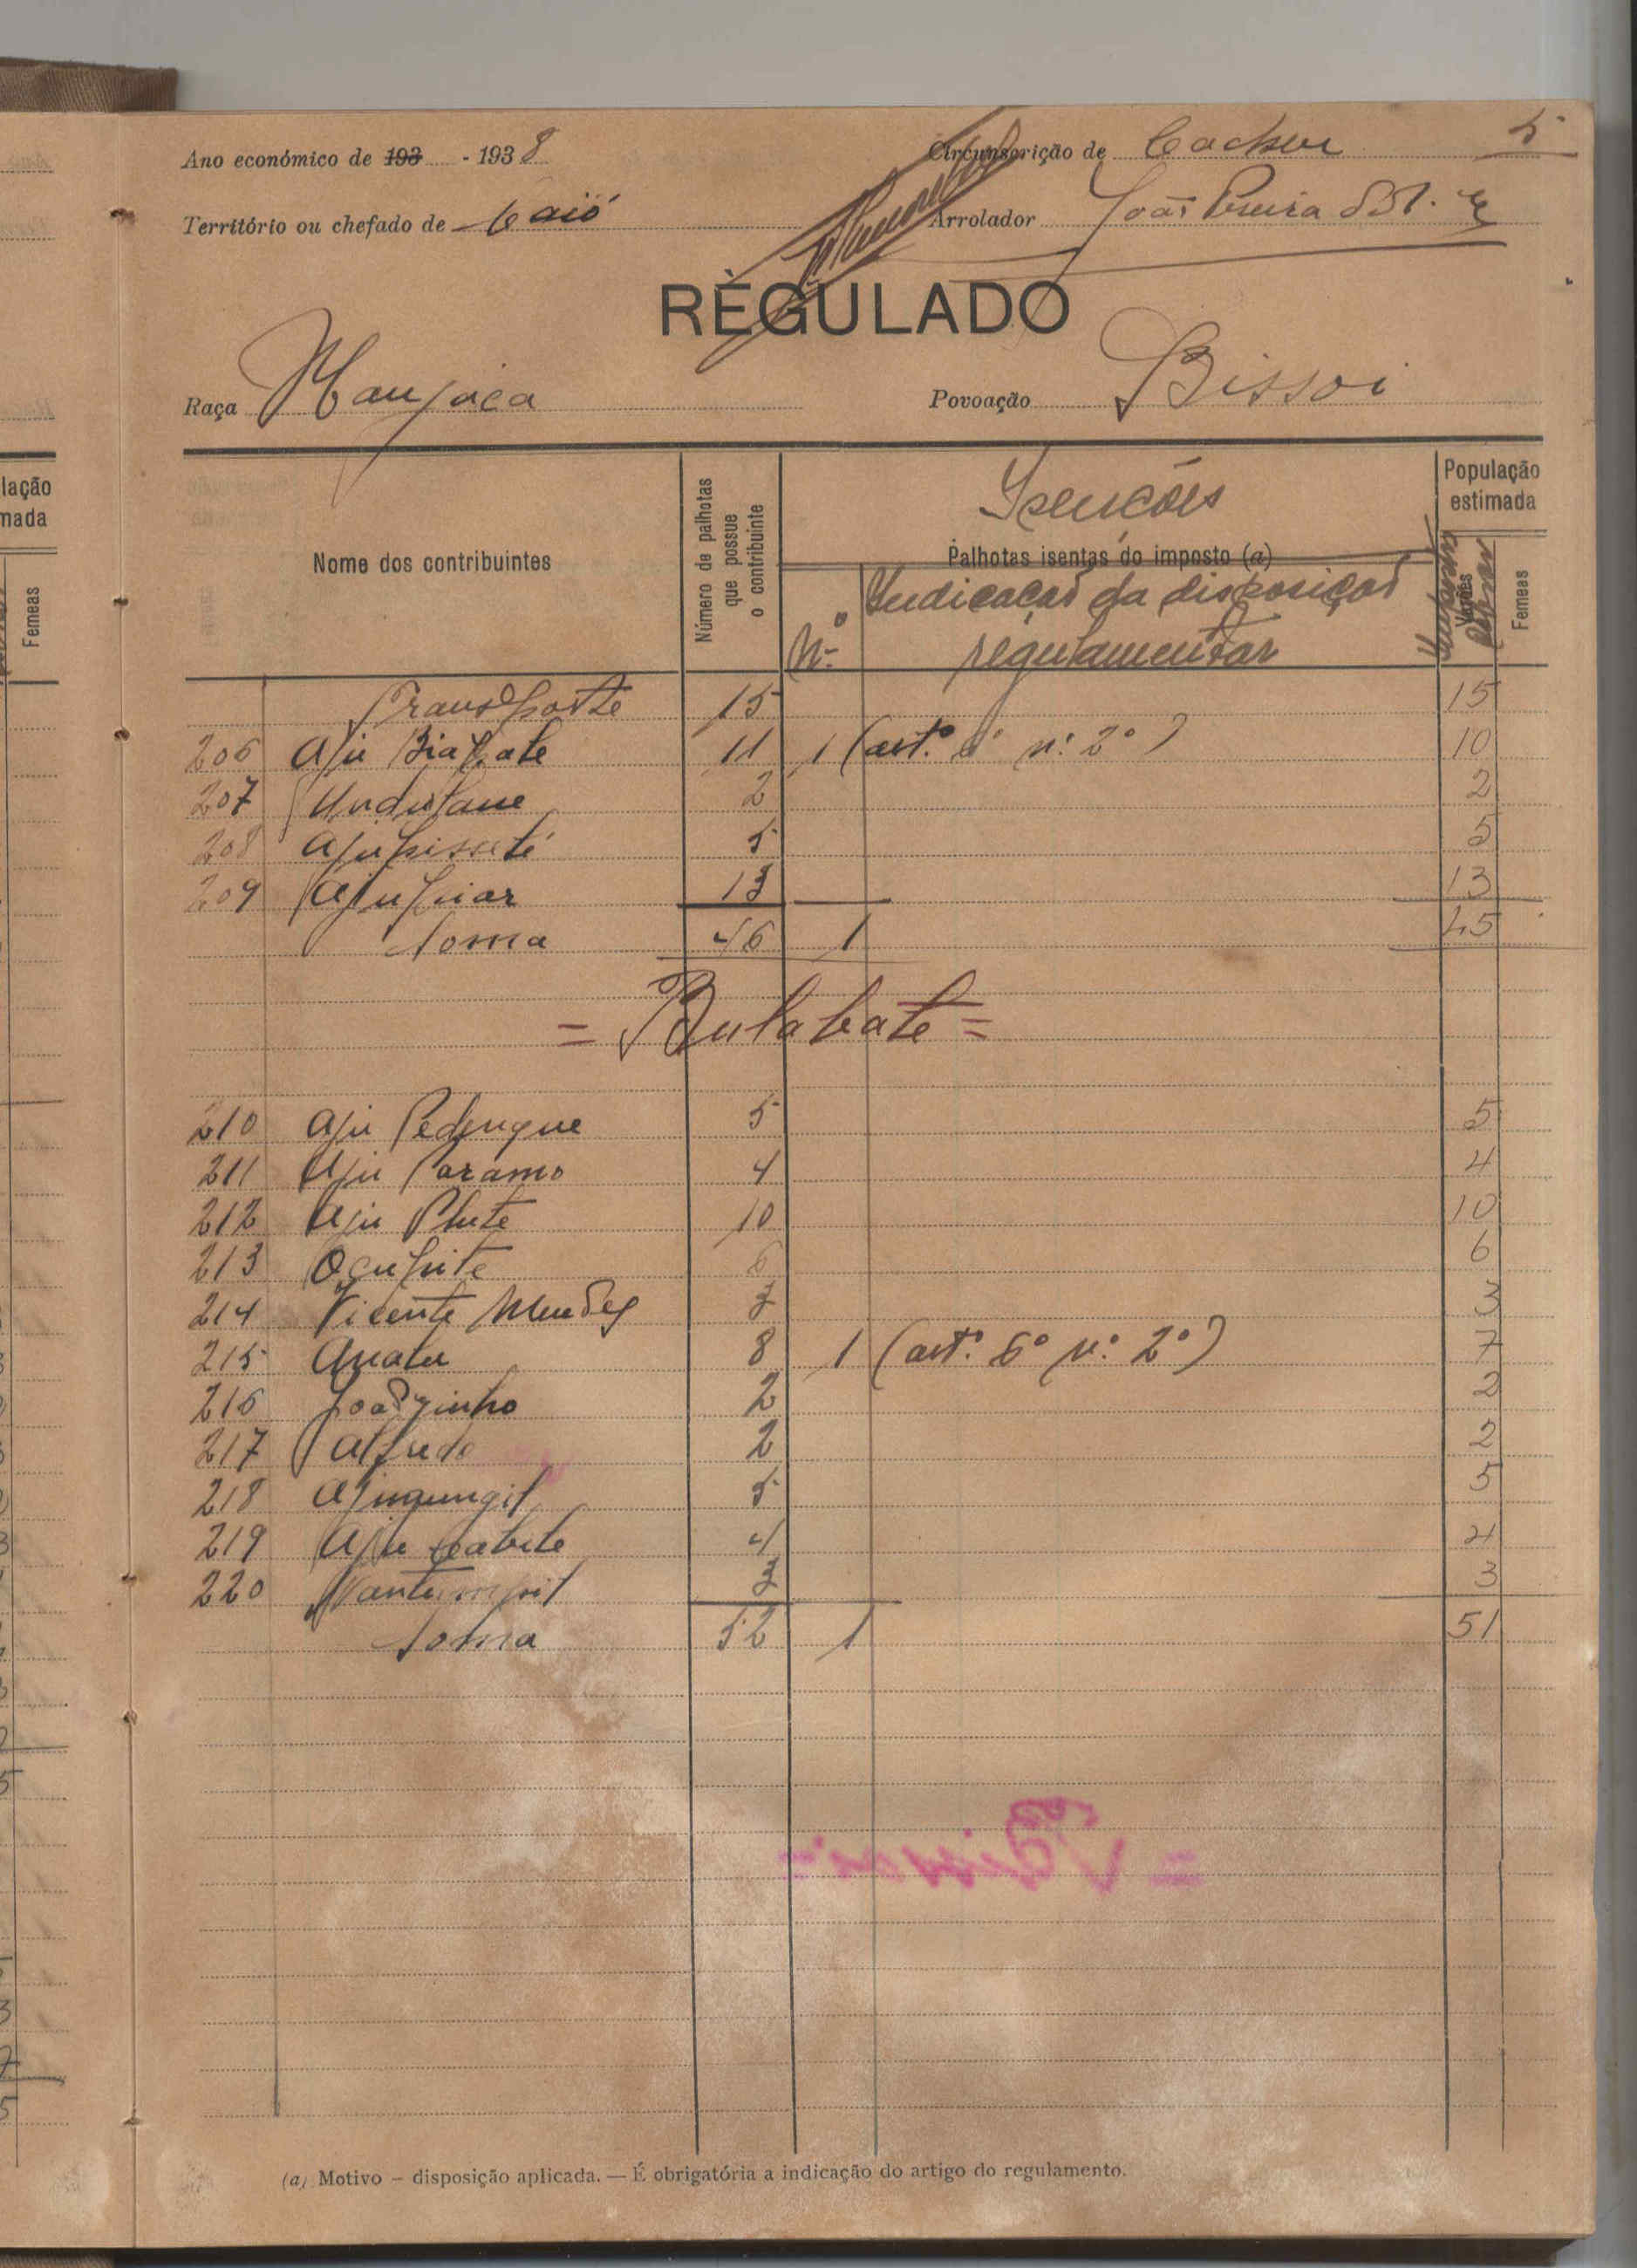 5
Ano económico de 193 - 1938 Circunscrição de Cacheu
Território ou chefado de Caió Arrolador João Pereira
REGULADO
Raça Manjaca Povoação Bissoi
Nome dos contribuintes
Número de palhotas que possue o contribuinte
Isenções
Palhotas isentas do imposto (a)
Nº Indicação da disposição
regulamentar
População
estimada
Varões
Femeas
Transporte 15 15
206 Aju Biapate 11 1 (art.º 6º n.º 2º) 10
207 2 2
208 Ajupisseté 5 5
209 13 13
Soma 46 1 45
= Bulabate =
210 Aju Pedengue 5 5
211 Aju Paramo 4 4
212 Aju Plute 10 10
213 6 6
214 Vicente Mendes 3 3
215 8 1 (art.º 6º n.º 2º) 7
216 Joãozinho 2 2
217 Alfredo 2 2
218 5 5
219 Aju 4 4
220 3 3
Soma 52 1 51
(a) Motivo – disposição aplicada. — É obrigatória a indicação do artigo do regulamento.
lação
mada
Femeas